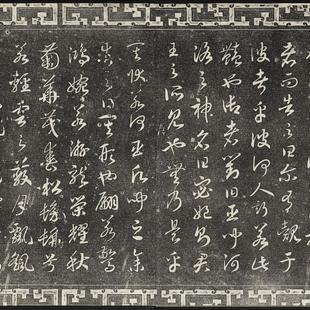 者而告之曰爾有覿于
彼者乎彼何人斯若此
豔也御者對曰臣聞河
洛之神名曰宓妃則君
王之所見也無乃是乎
其狀若何臣願聞之余
告之曰其形也翩若驚
鴻婉若游龍榮耀秋
菊華茂春松髣髴兮
若輕雲之蔽月飄飖